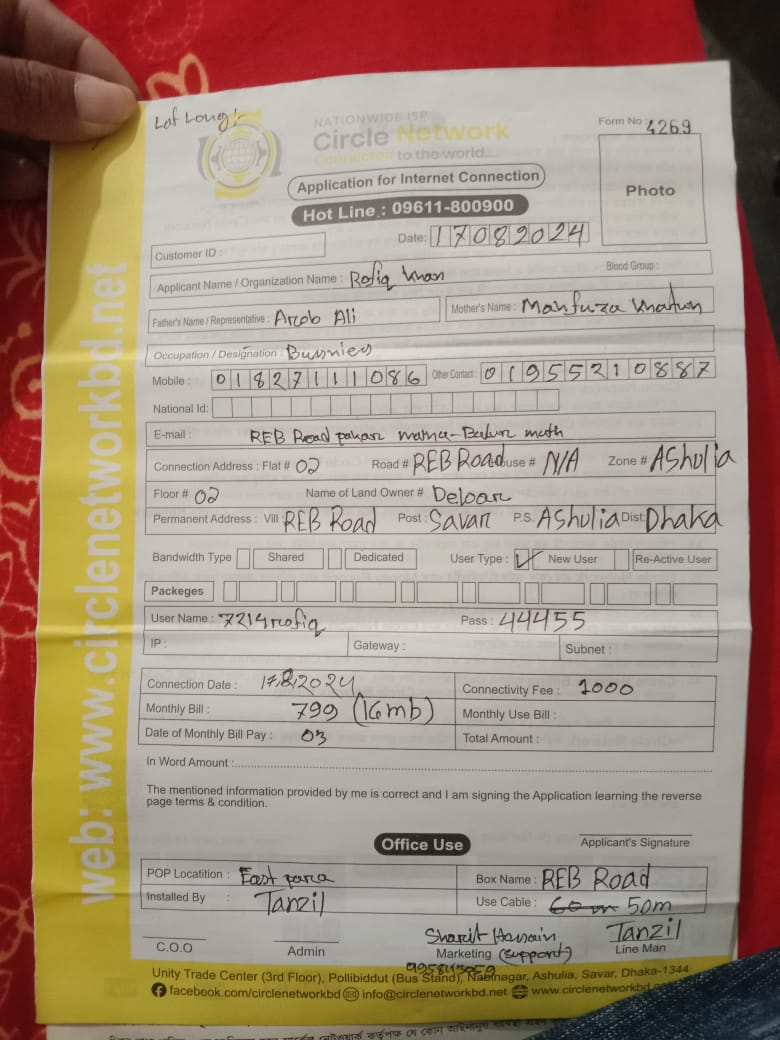 Lat Long:-
NATIONWIDE ISP
Circle Network
Connected to the world...
Form No 4269
Application for Internet Connection
Photo
Hot Line : 09611-800900
Date: 17082024
Customer ID :
Blood Group :
Applicant Name / Organization Name : Rofiq Khan
Father's Name / Representative : Arob Ali Mother's Name : Mahfuza Khatun
Occupation / Designation : Bussnies
Mobile : 01827111086 Other Contact : 01955210887
National Id:
E-mail : REB Road pakar matha-
Connection Address : Flat # 02 Road # REB Road House # N/A Zone # AShulia
Floor # 02 Name of Land Owner # Deloar
Permanent Address : Vill REB Road Post : Savar P.S. AShulia Dist: Dhaka
Bandwidth Type Shared Dedicated User Type : ✓ New User Re-Active User
Packeges
User Name : 7214rofiq Pass : 44455
IP : Gateway : Subnet :
Connection Date : 17.8.2024 Connectivity Fee : 1000
Monthly Bill : 799 (16mb) Monthly Use Bill :
Date of Monthly Bill Pay : 03 Total Amount :
In Word Amount :
The mentioned information provided by me is correct and I am signing the Application learning the reverse
page terms & condition.
Office Use
Applicant's Signature
POP Locatition : East para Box Name : REB Road
Installed By : Tanzil Use Cable : 60 m 50m
Sharif Hossain Tanzil
C.O.O Admin Marketing (support) Line Man
Unity Trade Center (3rd Floor), Pollibiddut (Bus Stand), Nabinagar, Ashulia, Savar, Dhaka-1344
facebook.com/circlenetworkbd info@circlenetworkbd.net www.circlenetworkbd
web: www.circlenetworkbd.net